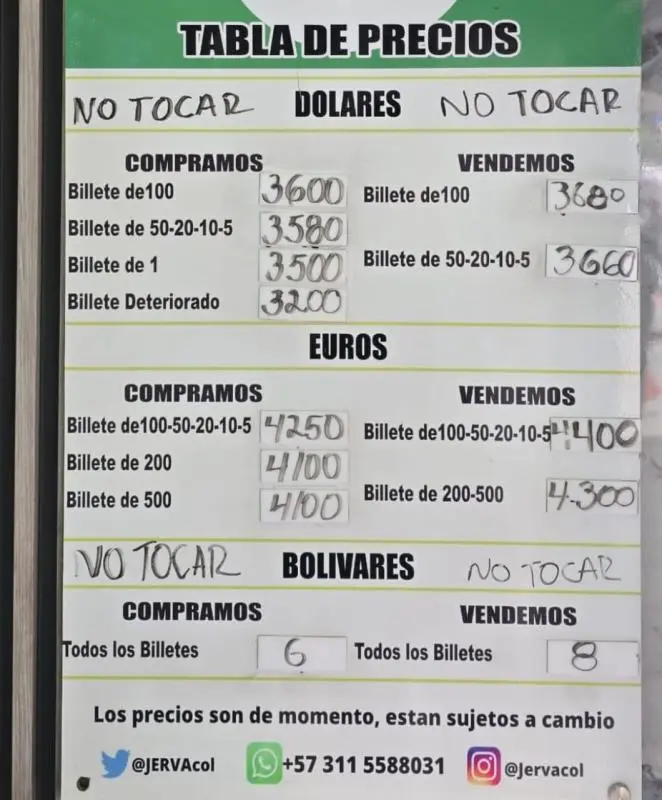 TABLA DE PRECIOS
NO TOCAR DOLARES NO TOCAR
COMPRAMOS VENDEMOS
Billete de100 3600 Billete de100 3680
Billete de 50-20-10-5 3580
Billete de 1 3500 Billete de 50-20-10-5 3660
Billete Deteriorado 3200
EUROS
COMPRAMOS VENDEMOS
Billete de100-50-20-10-5 4250 Billete de100-50-20-10-5 4.400
Billete de 200 4100
Billete de 500 4100 Billete de 200-500 4.300
NO TOCAR BOLIVARES NO TOCAR
COMPRAMOS VENDEMOS
Todos los Billetes 6 Todos los Billetes 8
Los precios son de momento, estan sujetos a cambio
@JERVAcol +57 311 5588031 @Jervacol